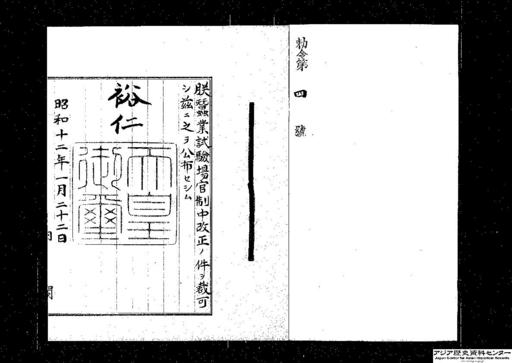 勅令第四號
朕蠶業試驗場官制中改正ノ件ヲ裁可
シ茲ニ之ヲ公布セシム
裕仁
天皇御璽
昭和十二年一月二十二日
アジア歴史資料センター
Japan Center for Asian Historical Records